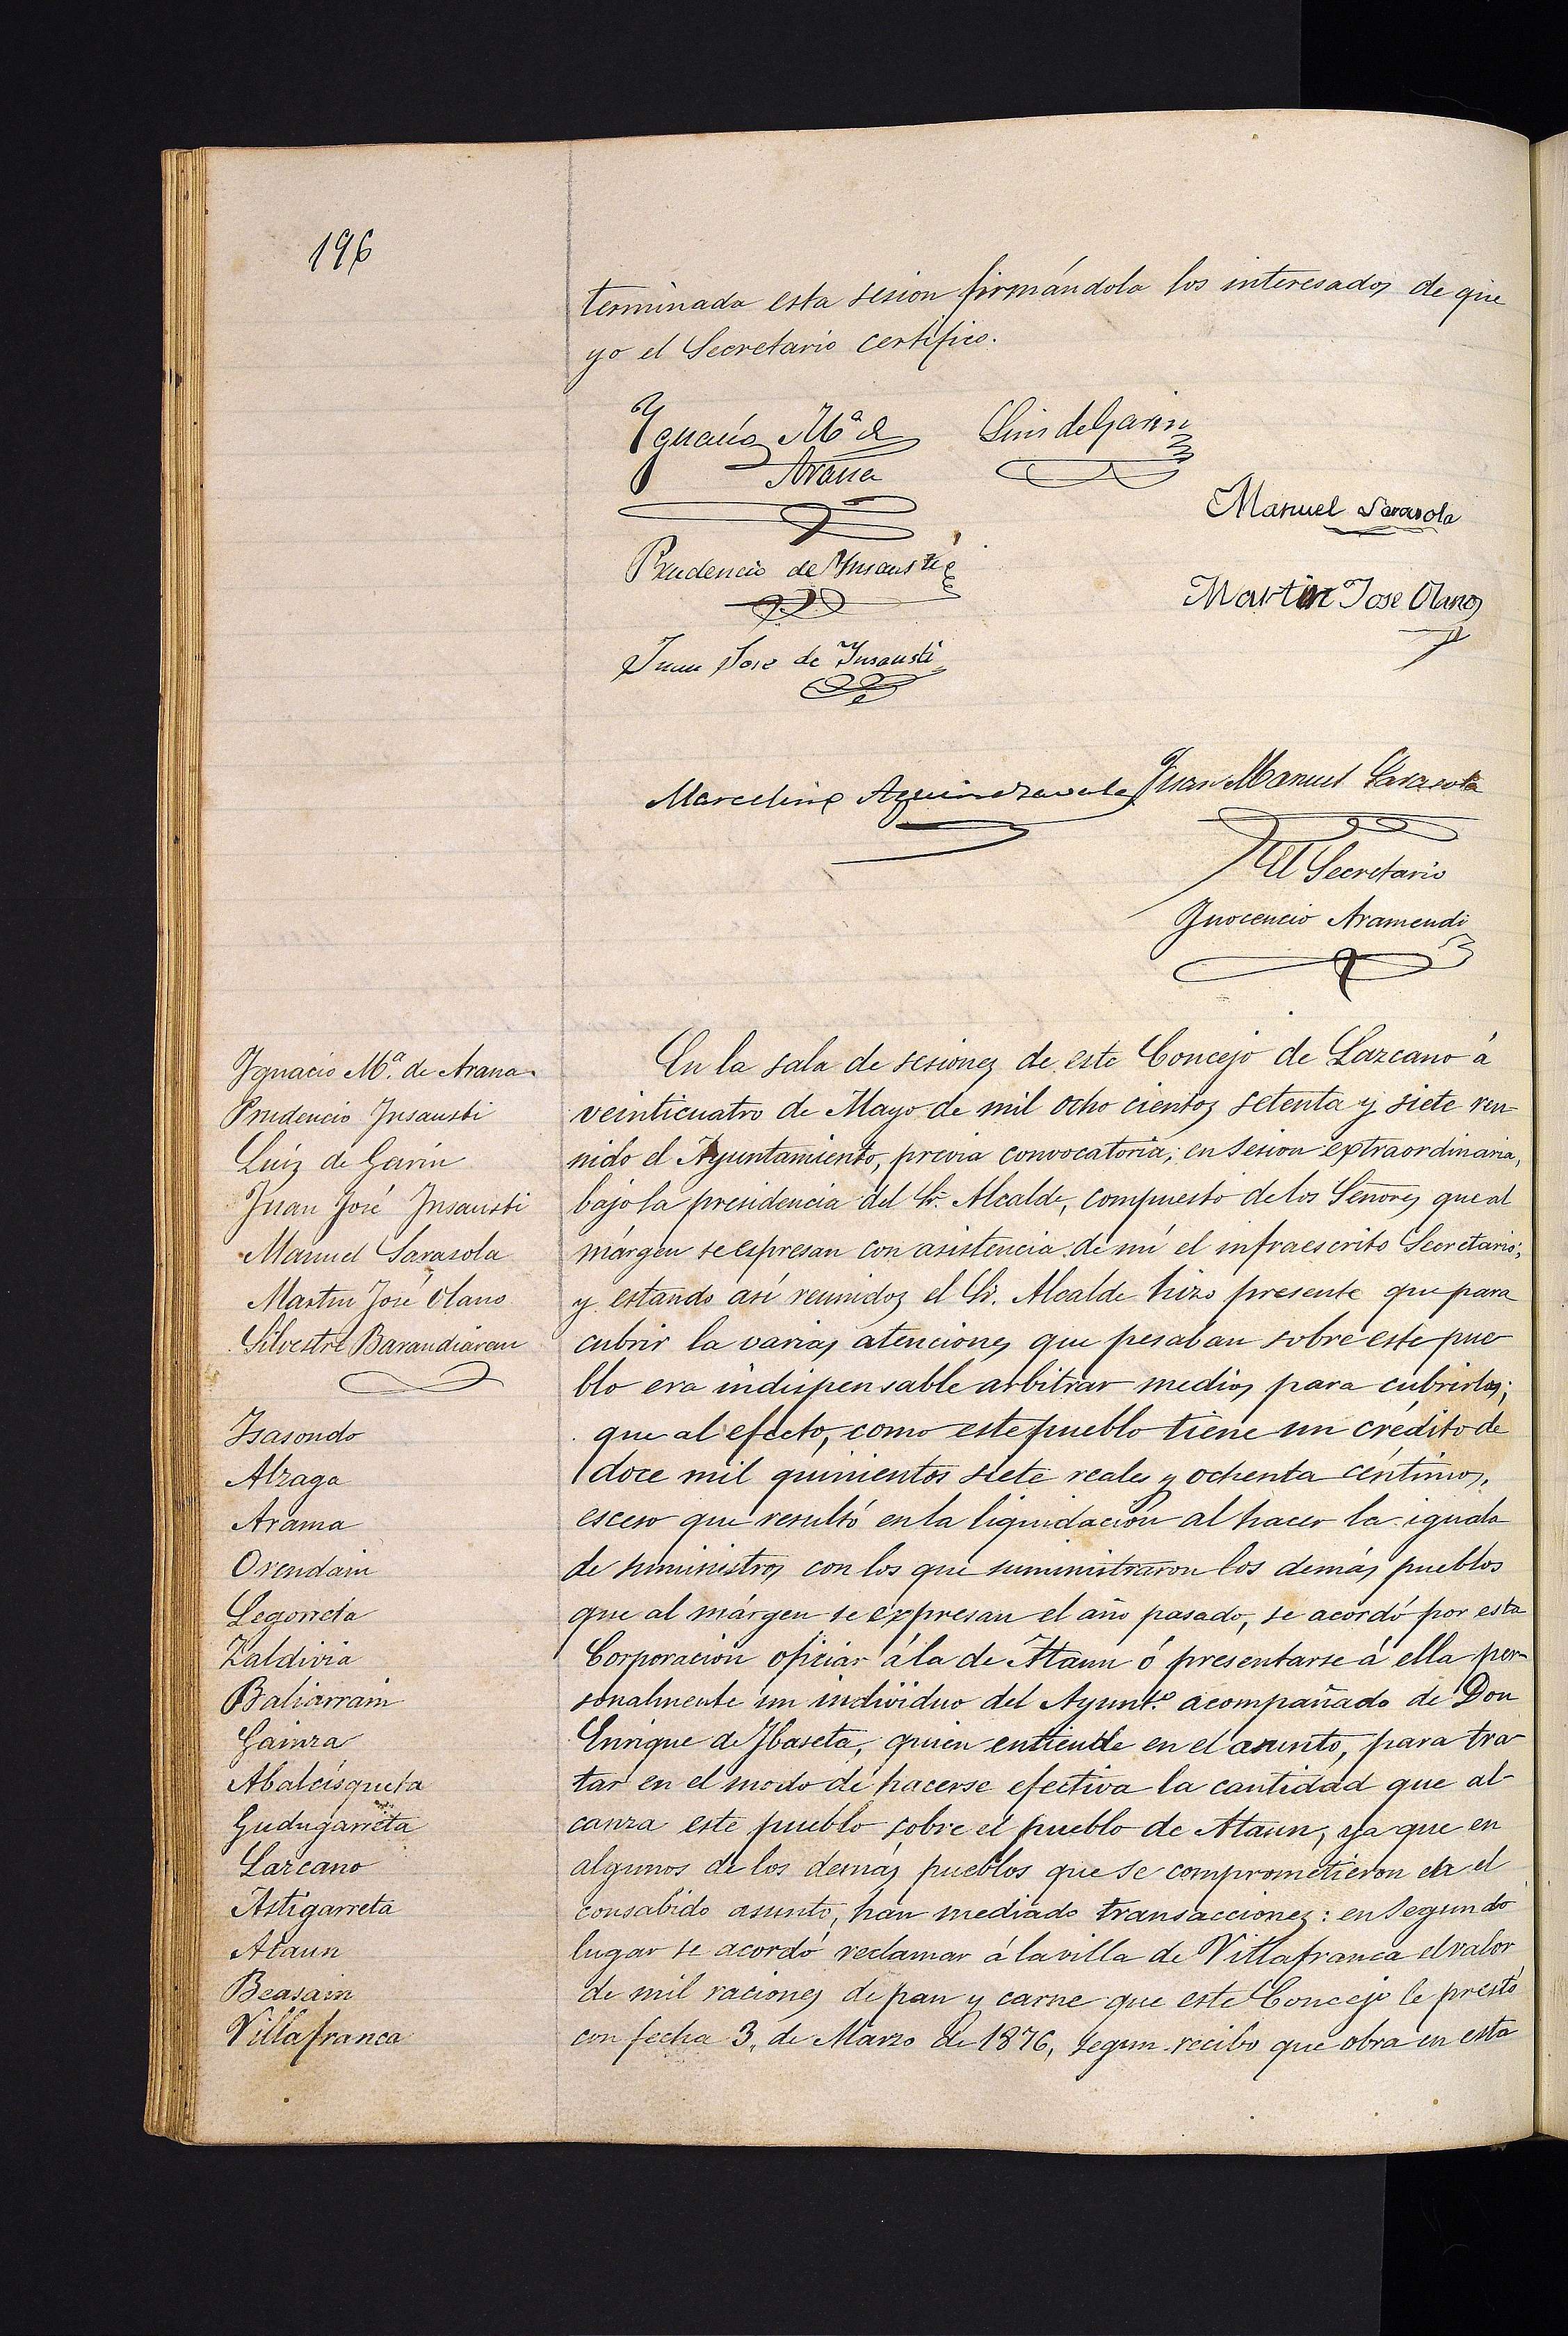 196
terminada esta sesion firmándola los interesados de que
yo el Secretario certifico.
Ygnacio Mª de
Arana
Luis de Garin
Manuel Sarasola
Prudencio de Ynsausti
Martin Jose Olano
Juan José de Ynsausti
Marcelino Aguirrezavala
Juan Manuel Sarasola
El Secretario
Inocencio Aramendi
Ygnacio Mª. de Arana
Prudencio Insausti
Luiz de Garin
Juan José Insausti
Manuel Sarasola
Martin José Olano
Silvestre Barandiaran
Isasondo
Alzaga
Arama
Orendain
Legorreta
Zaldivia
Baliarrain
Gainza
Abalcisqueta
Gudugarreta
Lazcano
Astigarreta
Ataun
Beasain
Villafranca
En la sala de sesiones de este Concejo de Lazcano á
veinticuatro de Mayo de mil ocho cientos setenta y siete reu-
nido el Ayuntamiento, previa convocatoria, en sesion extraordinaria,
bajo la presidencia del Sr. Alcalde, compuesto de los Señores que al
márgen se espresan con asistencia de mí el infraescrito Secretario;
y estando así reunidos el Sr. Alcalde hizo presente que para
cubrir la varias atenciones que pesaban sobre este pue-
blo era indispensable arbitrar medios para cubrirlas;
que al efecto, como este pueblo tiene un crédito de
doce mil quinientos siete reales y ochenta céntimos,
esceso que resultó en la liquidación al hacer la iguala
de suministros con los que suministraron los demás pueblos
que al márgen se expresan el año pasado, se acordó por esta
Corporacion oficiar á la de Ataun ó presentarse á ella per-
sonalmente un individuo del Ayunt.º acompañado de Don
Enrique de Ybaseta, quien entiende en el asunto, para tra-
tar en el modo de hacerse efectiva la cantidad que al-
canza este pueblo sobre el pueblo de Ataun, ya que en
algunos de los demás pueblos que se comprometieron en el
consabido asunto, han mediado transacciones: en segundo
lugar se acordó reclamar á la villa de Villafranca el valor
de mil raciones de pan y carne que este Concejo le prestó
con fecha 3, de Marzo de 1876, segun recibo que obra en esta